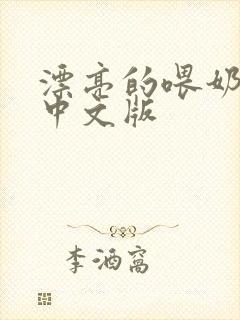 漂亮的喂奶
中文版
李酒窝